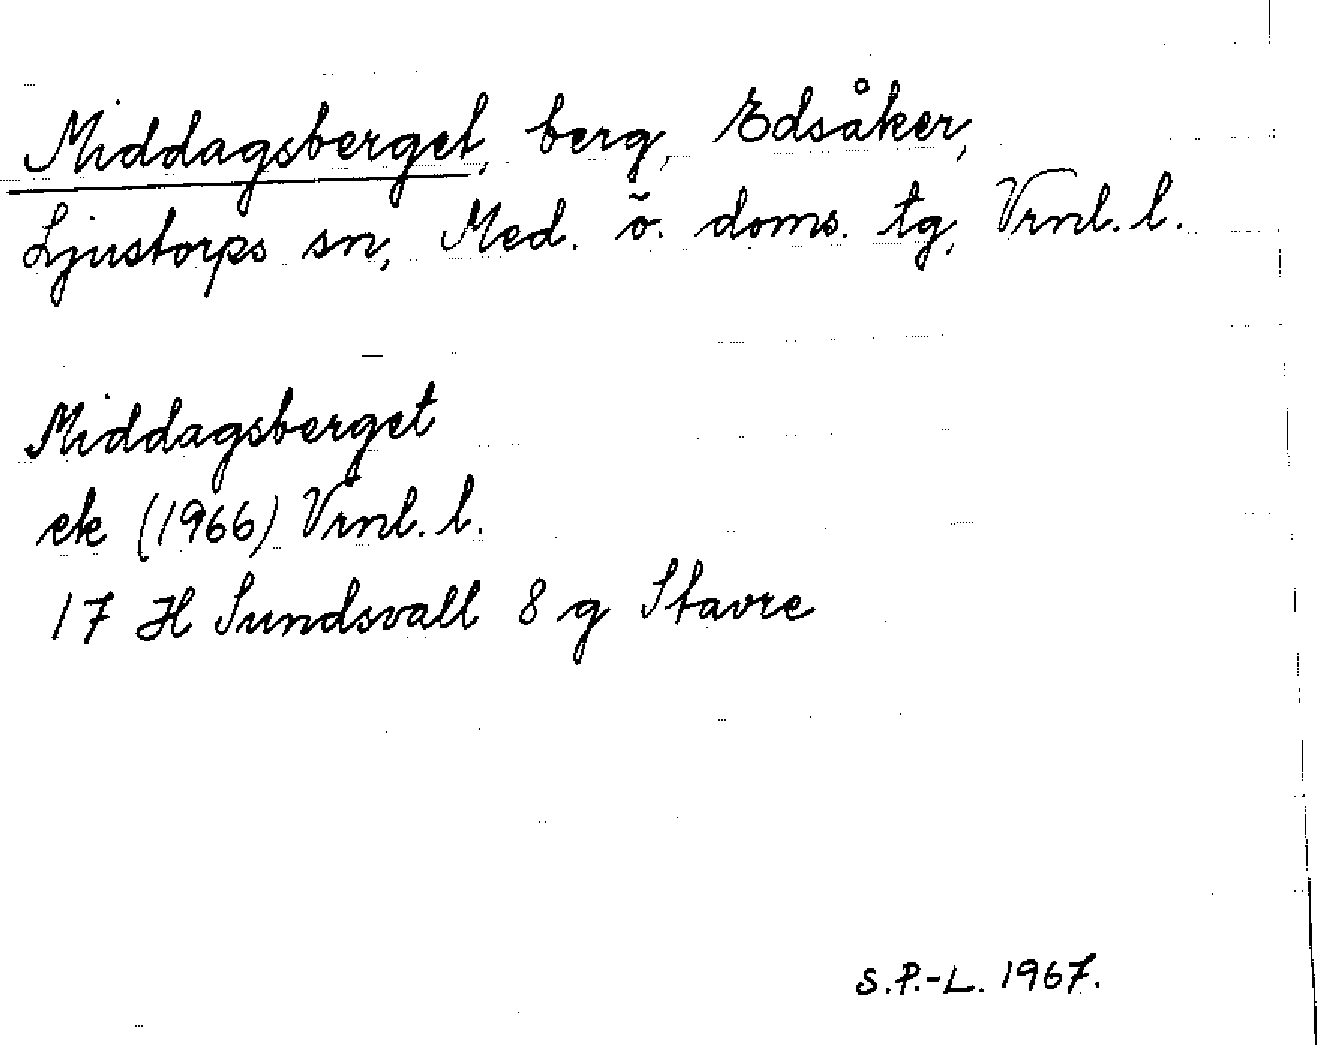 Middagsberget, berg, Edsåker,
Ljustorps sn, Med. ö. doms. tg, Vrnl. l.
Middagsberget
ek (1966) Vrnl. l.
17 H Sundsvall 8 g Stavre
S.P.-L. 1967.